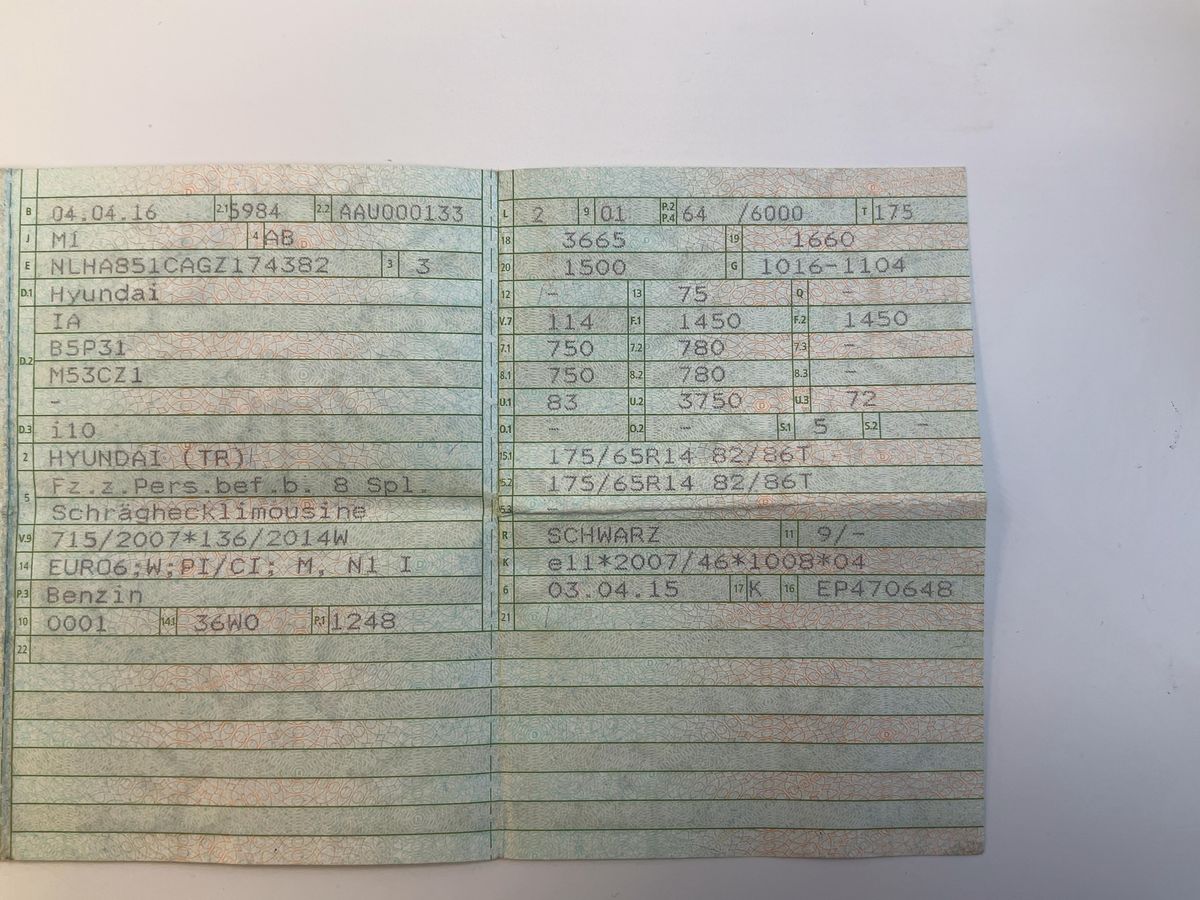 B 04.04.16 2.1 5984 2.2 AAU000133
J M1 4 AB
E NLHA851CAGZ174382 3 3
D.1 Hyundai
IA
D.2 B5P31
M53CZ1
-
D.3 i10
2 HYUNDAI (TR)
Fz.z.Pers.bef.b. 8 Spl.
5 Schräghecklimousine
V.9 715/2007*136/2014W
14 EURO6;W;PI/CI; M, N1 I
P.3 Benzin
10 0001 14.1 36W0 P.1 1248
22
L 2 9 01 P.2 P.4 64 /6000 T 175
18 3665 19 1660
20 1500 G 1016-1104
12 - 13 75 Q -
V.7 114 F.1 1450 F.2 1450
7.1 750 7.2 780 7.3 -
8.1 750 8.2 780 8.3 -
U.1 83 U.2 3750 U.3 72
O.1 - O.2 - S.1 5 S.2 -
15.1 175/65R14 82/86T
15.2 175/65R14 82/86T
15.3 -
R SCHWARZ 11 9/-
K e11*2007/46*1008*04
6 03.04.15 17 K 16 EP470648
21